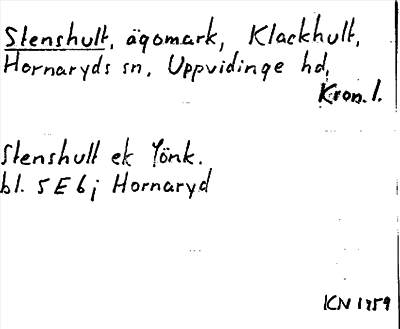 Stenshult, ägomark, Klackhult,
Hornaryds sn, Uppvidinge hd,
Kron. l.
Stenshult ek Jönk.
bl. 5 E 6 j Hornaryd
KN 1959